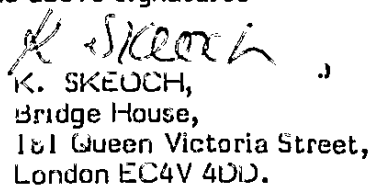 above signatures
K Skeoch
K. SKEOCH,
Bridge House,
181 Queen Victoria Street,
London EC4V 4DD.